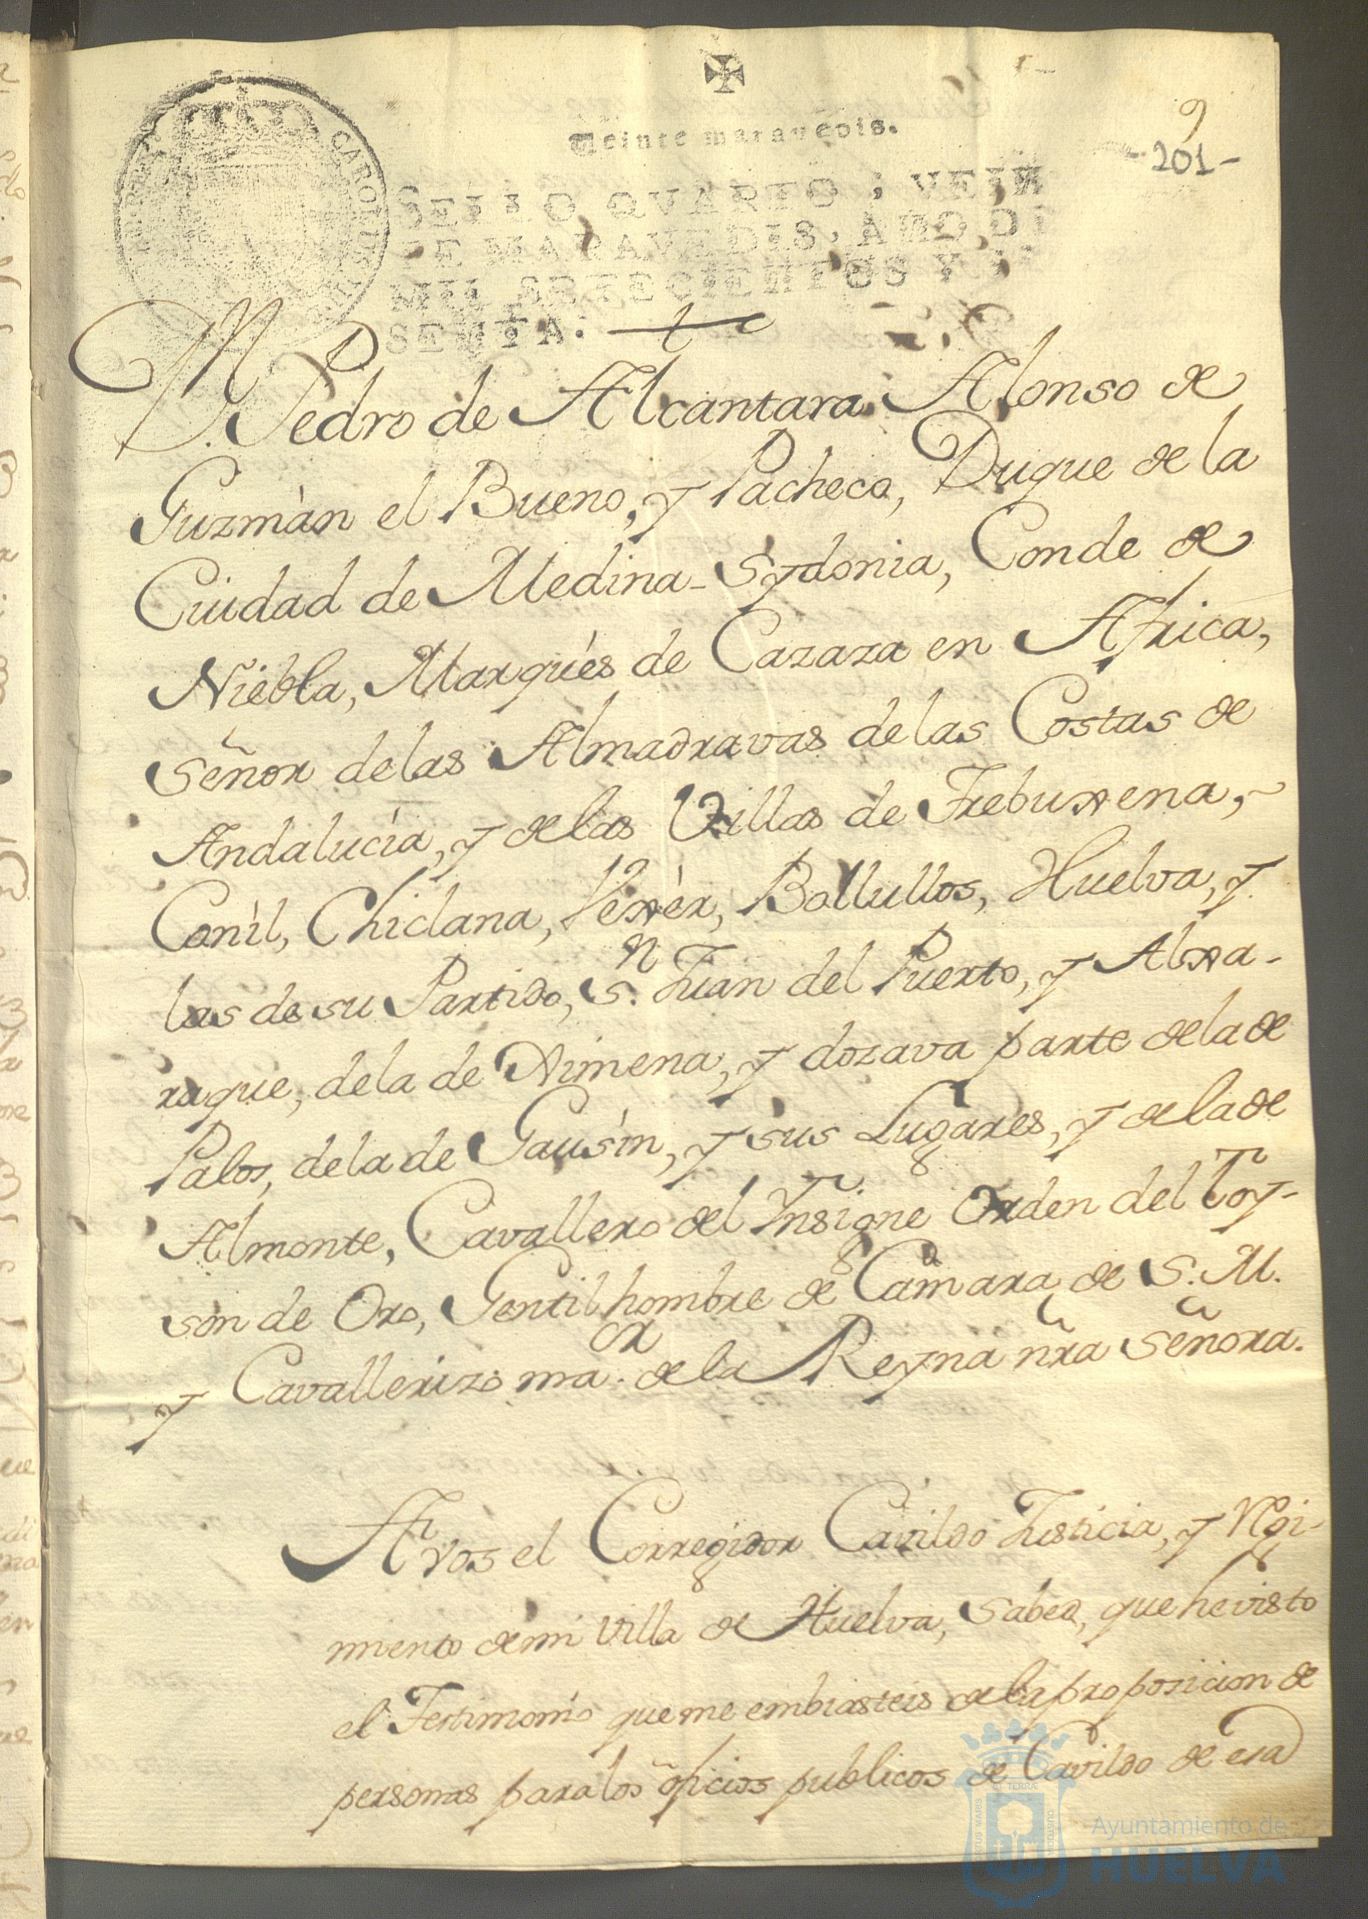 Veinte maravedis.
9
-201-
CAROLUS III
SELLO QVARTO, VEIN
TE MARAVEDIS, AÑO DE
MIL SETECIENTOS Y
SENTA.
Dn. Pedro de Alcantara Alonso de
Guzmàn el Bueno, y Pacheco, Duque de la
Ciudad de Medina-Sydonia, Conde de
Niebla, Marqués de Cazaza en Africa,
Señor de las Almadravas de las Costas de
Andalucía, y de las Villas de Trebuxena,
Conìl, Chiclana, Vexèr, Bollullos, Huelva, y
las de su Partido, Sn. Juan del Puerto, y Alxa-
raque, de la de Ximena, y dozava parte de la de
Palos, de la de Gausìn, y sus Lugares, y de la de
Almonte, Cavallero del Insigne Orden del Toy-
són de Oro, Gentil hombre de Cámara de S. M.
y Cavallerizo maor. de la Reyna nr̃a Señora.
A vos el Corregidor Cavildo Justicia, y Rgi-
miento de mi Villa de Huelva, Sabed, que he visto
el Testimonio que me embiasteis de la proposicion de
personas para los oficios publicos de Cavildo de esa
Ayuntamiento de
HUELVA